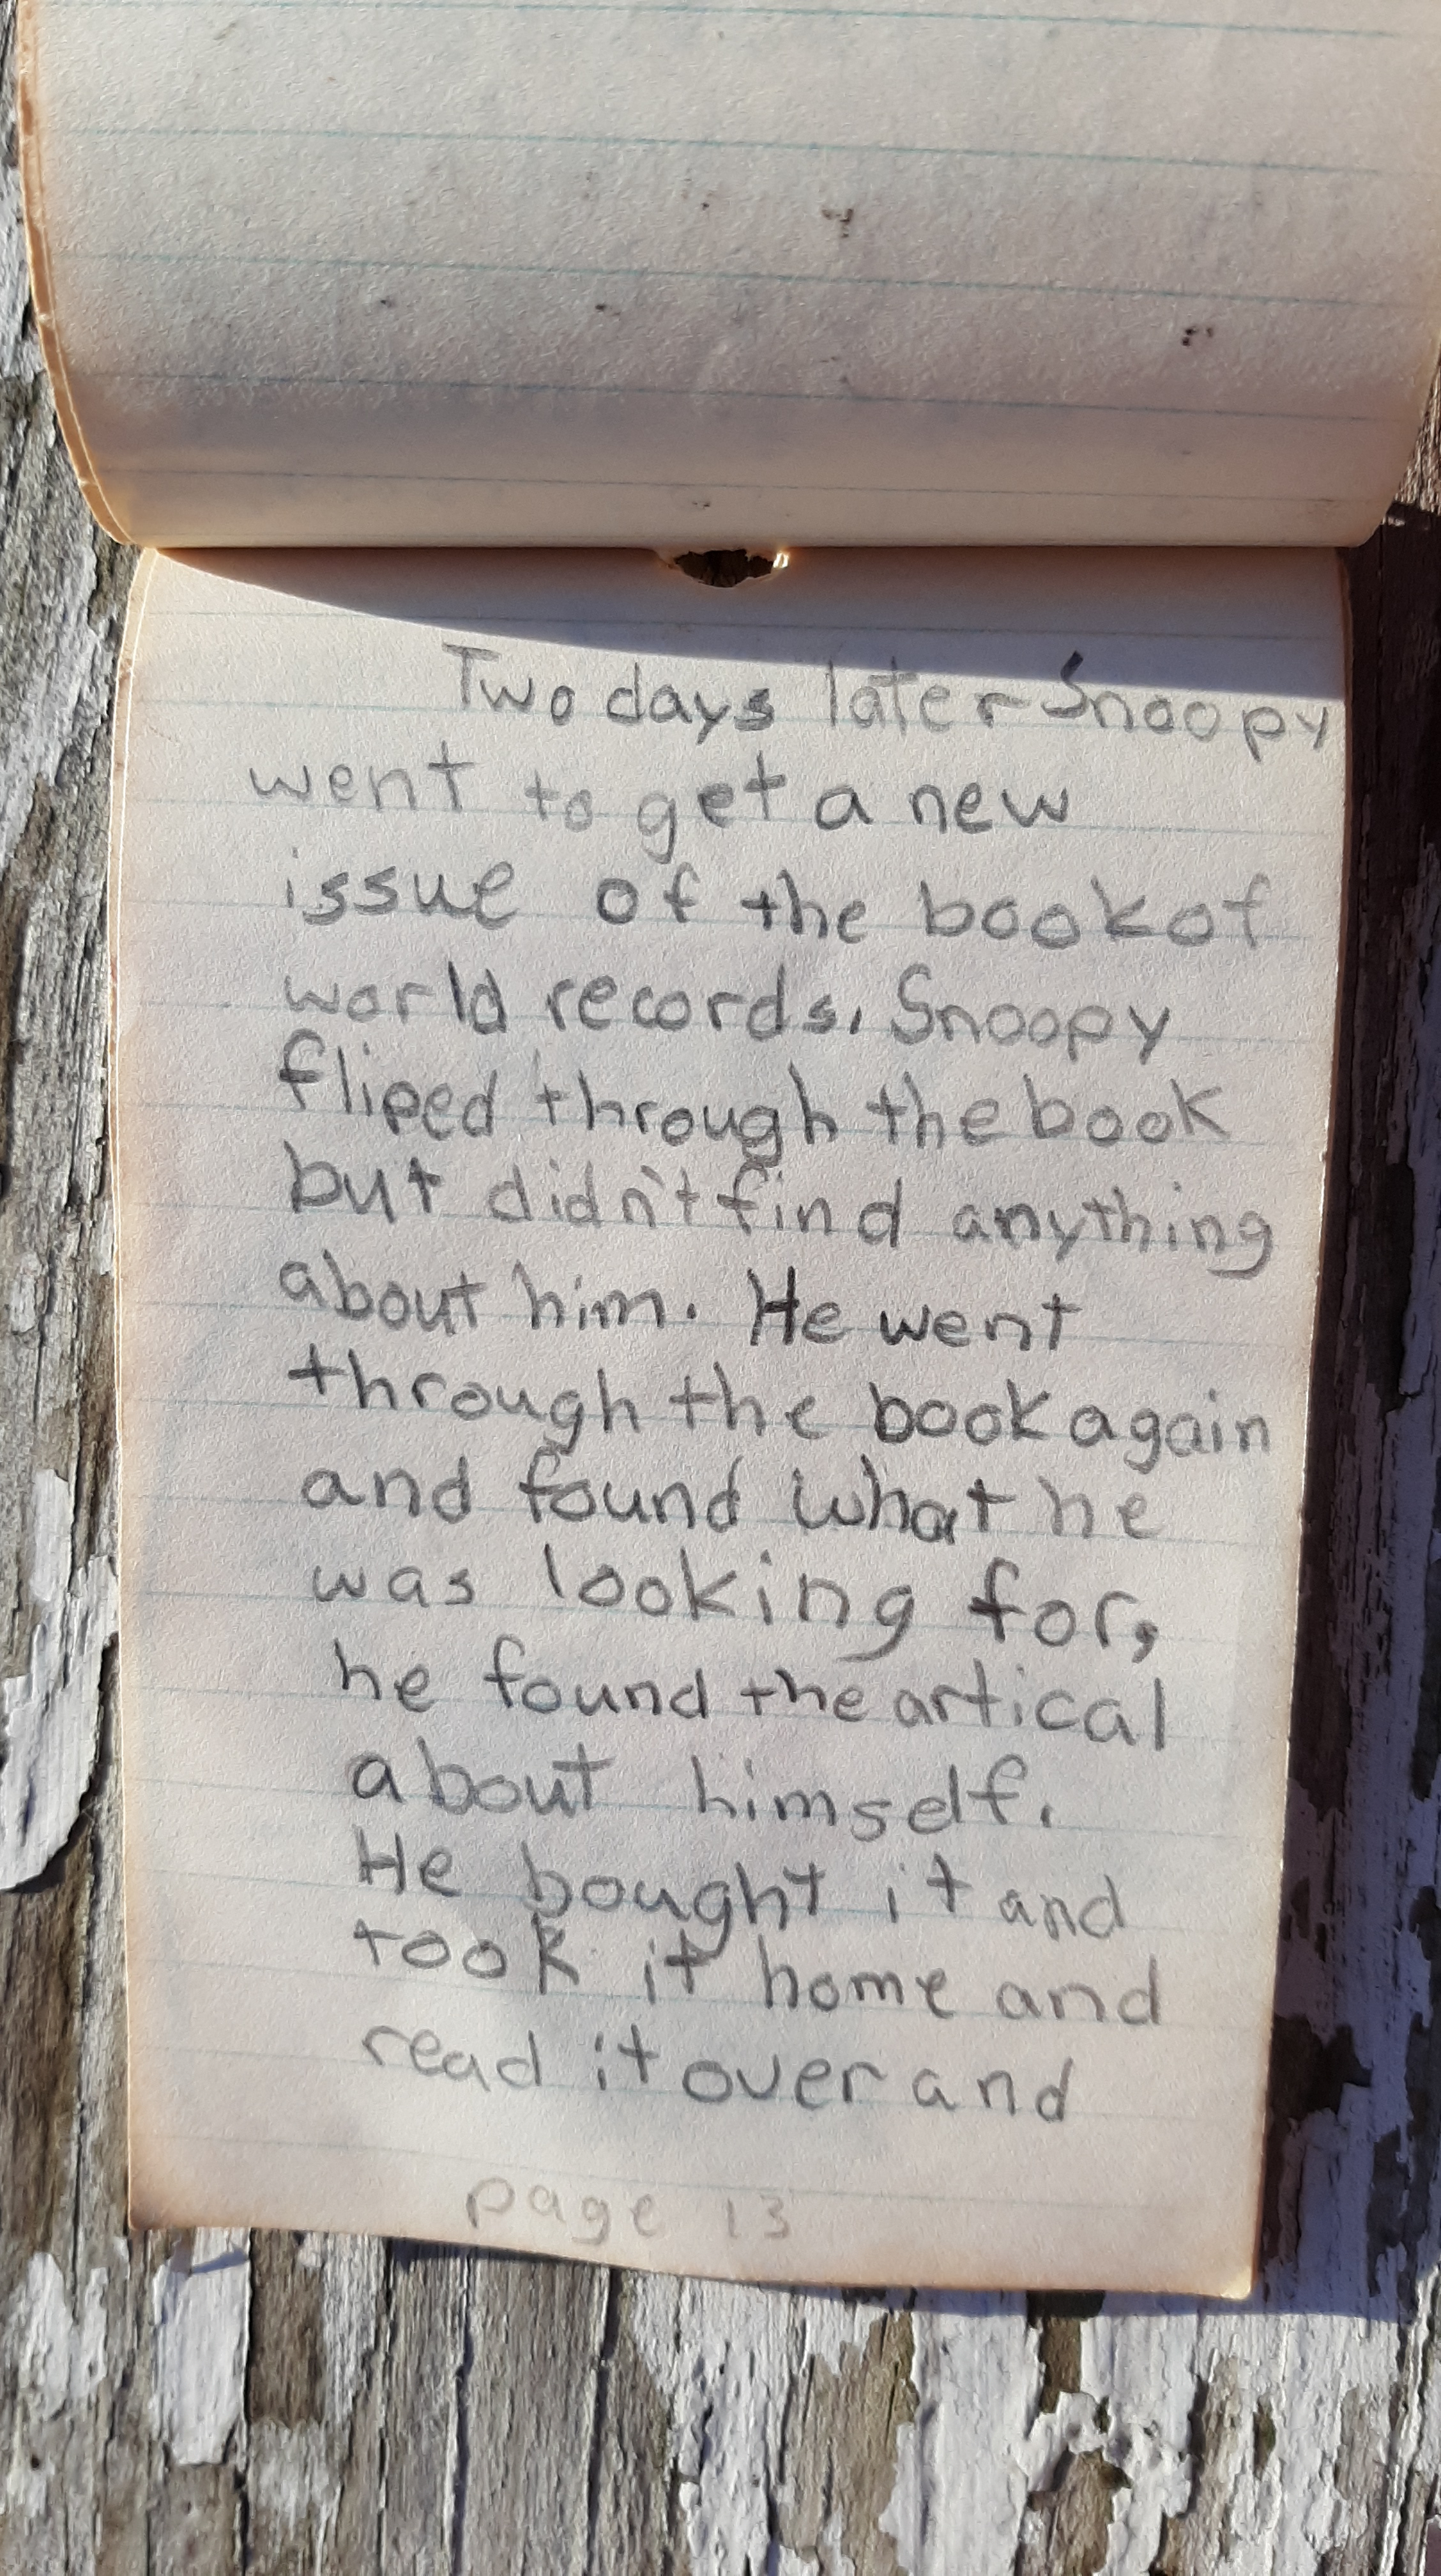 Two days later Snoopy
went to get a new
issue of the book of
world records. Snoopy
fliped through the book
but didn't find anything
about him. He went
through the book again
and found what he
was looking for,
he found the artical
about himself.
He bought it and
took it home and
read it over and
page 13